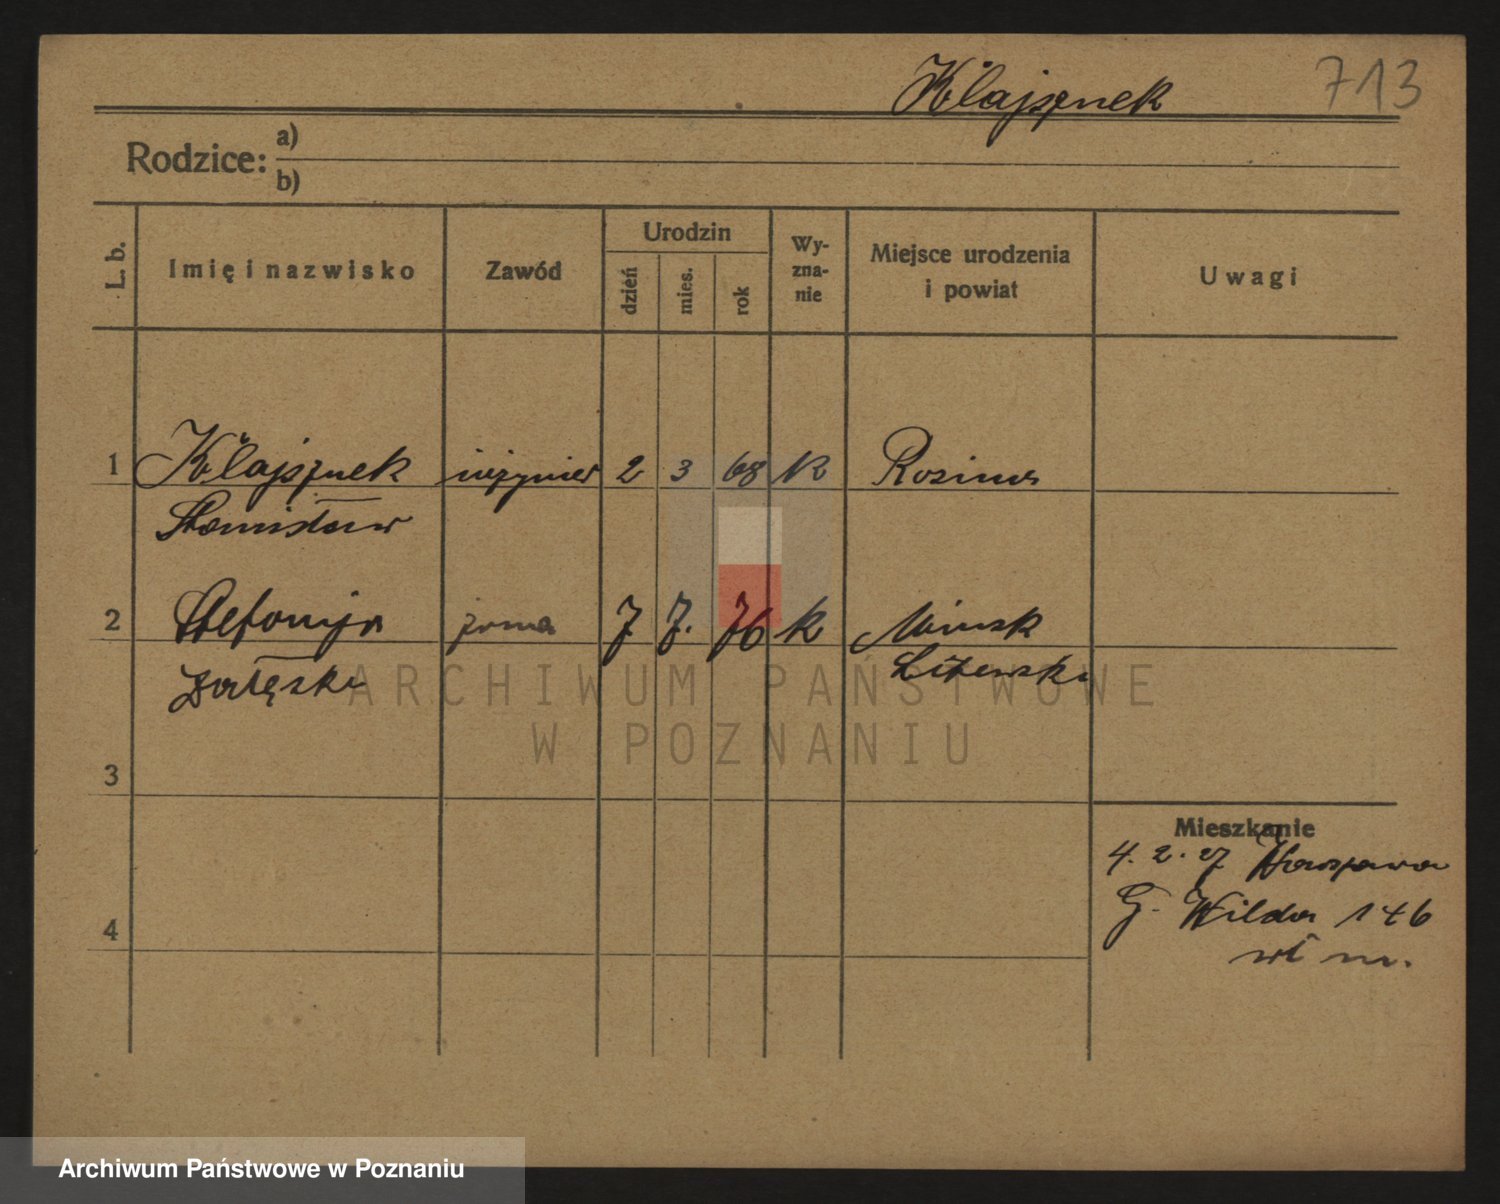 Klajsznek 713
Rodzice: a)
b)
L. b. Imię i nazwisko Zawód Urodzin dzień mies. rok Wyznanie Miejsce urodzenia i powiat Uwagi
1 Klajsznek inżynier 2 3 68 K
Stanisław
2 Stefanija żona 7 7. 76 k Mińsk
Załęska Litewski
3
Mieszkanie
4. 2. 27 Warszawa
G. Wilda 146
4
wł m.
ARCHIWUM PAŃSTWOWE
W POZNANIU
Archiwum Państwowe w Poznaniu